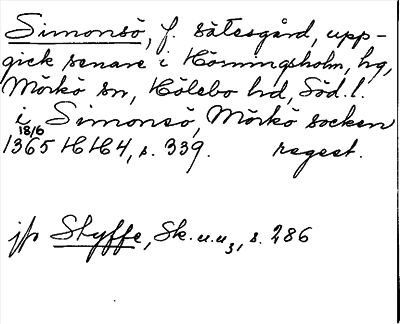 Simonsö, f. sätesgård, upp-
gick senare i Hörningsholm, hg,
Mörkö sn, Hölebo hd, Söd. l.
i Simonsö, Mörkö socken
18/6
1365 HH4, s. 339. regest.
jfr Styffe, Sk.u.u3, s. 286